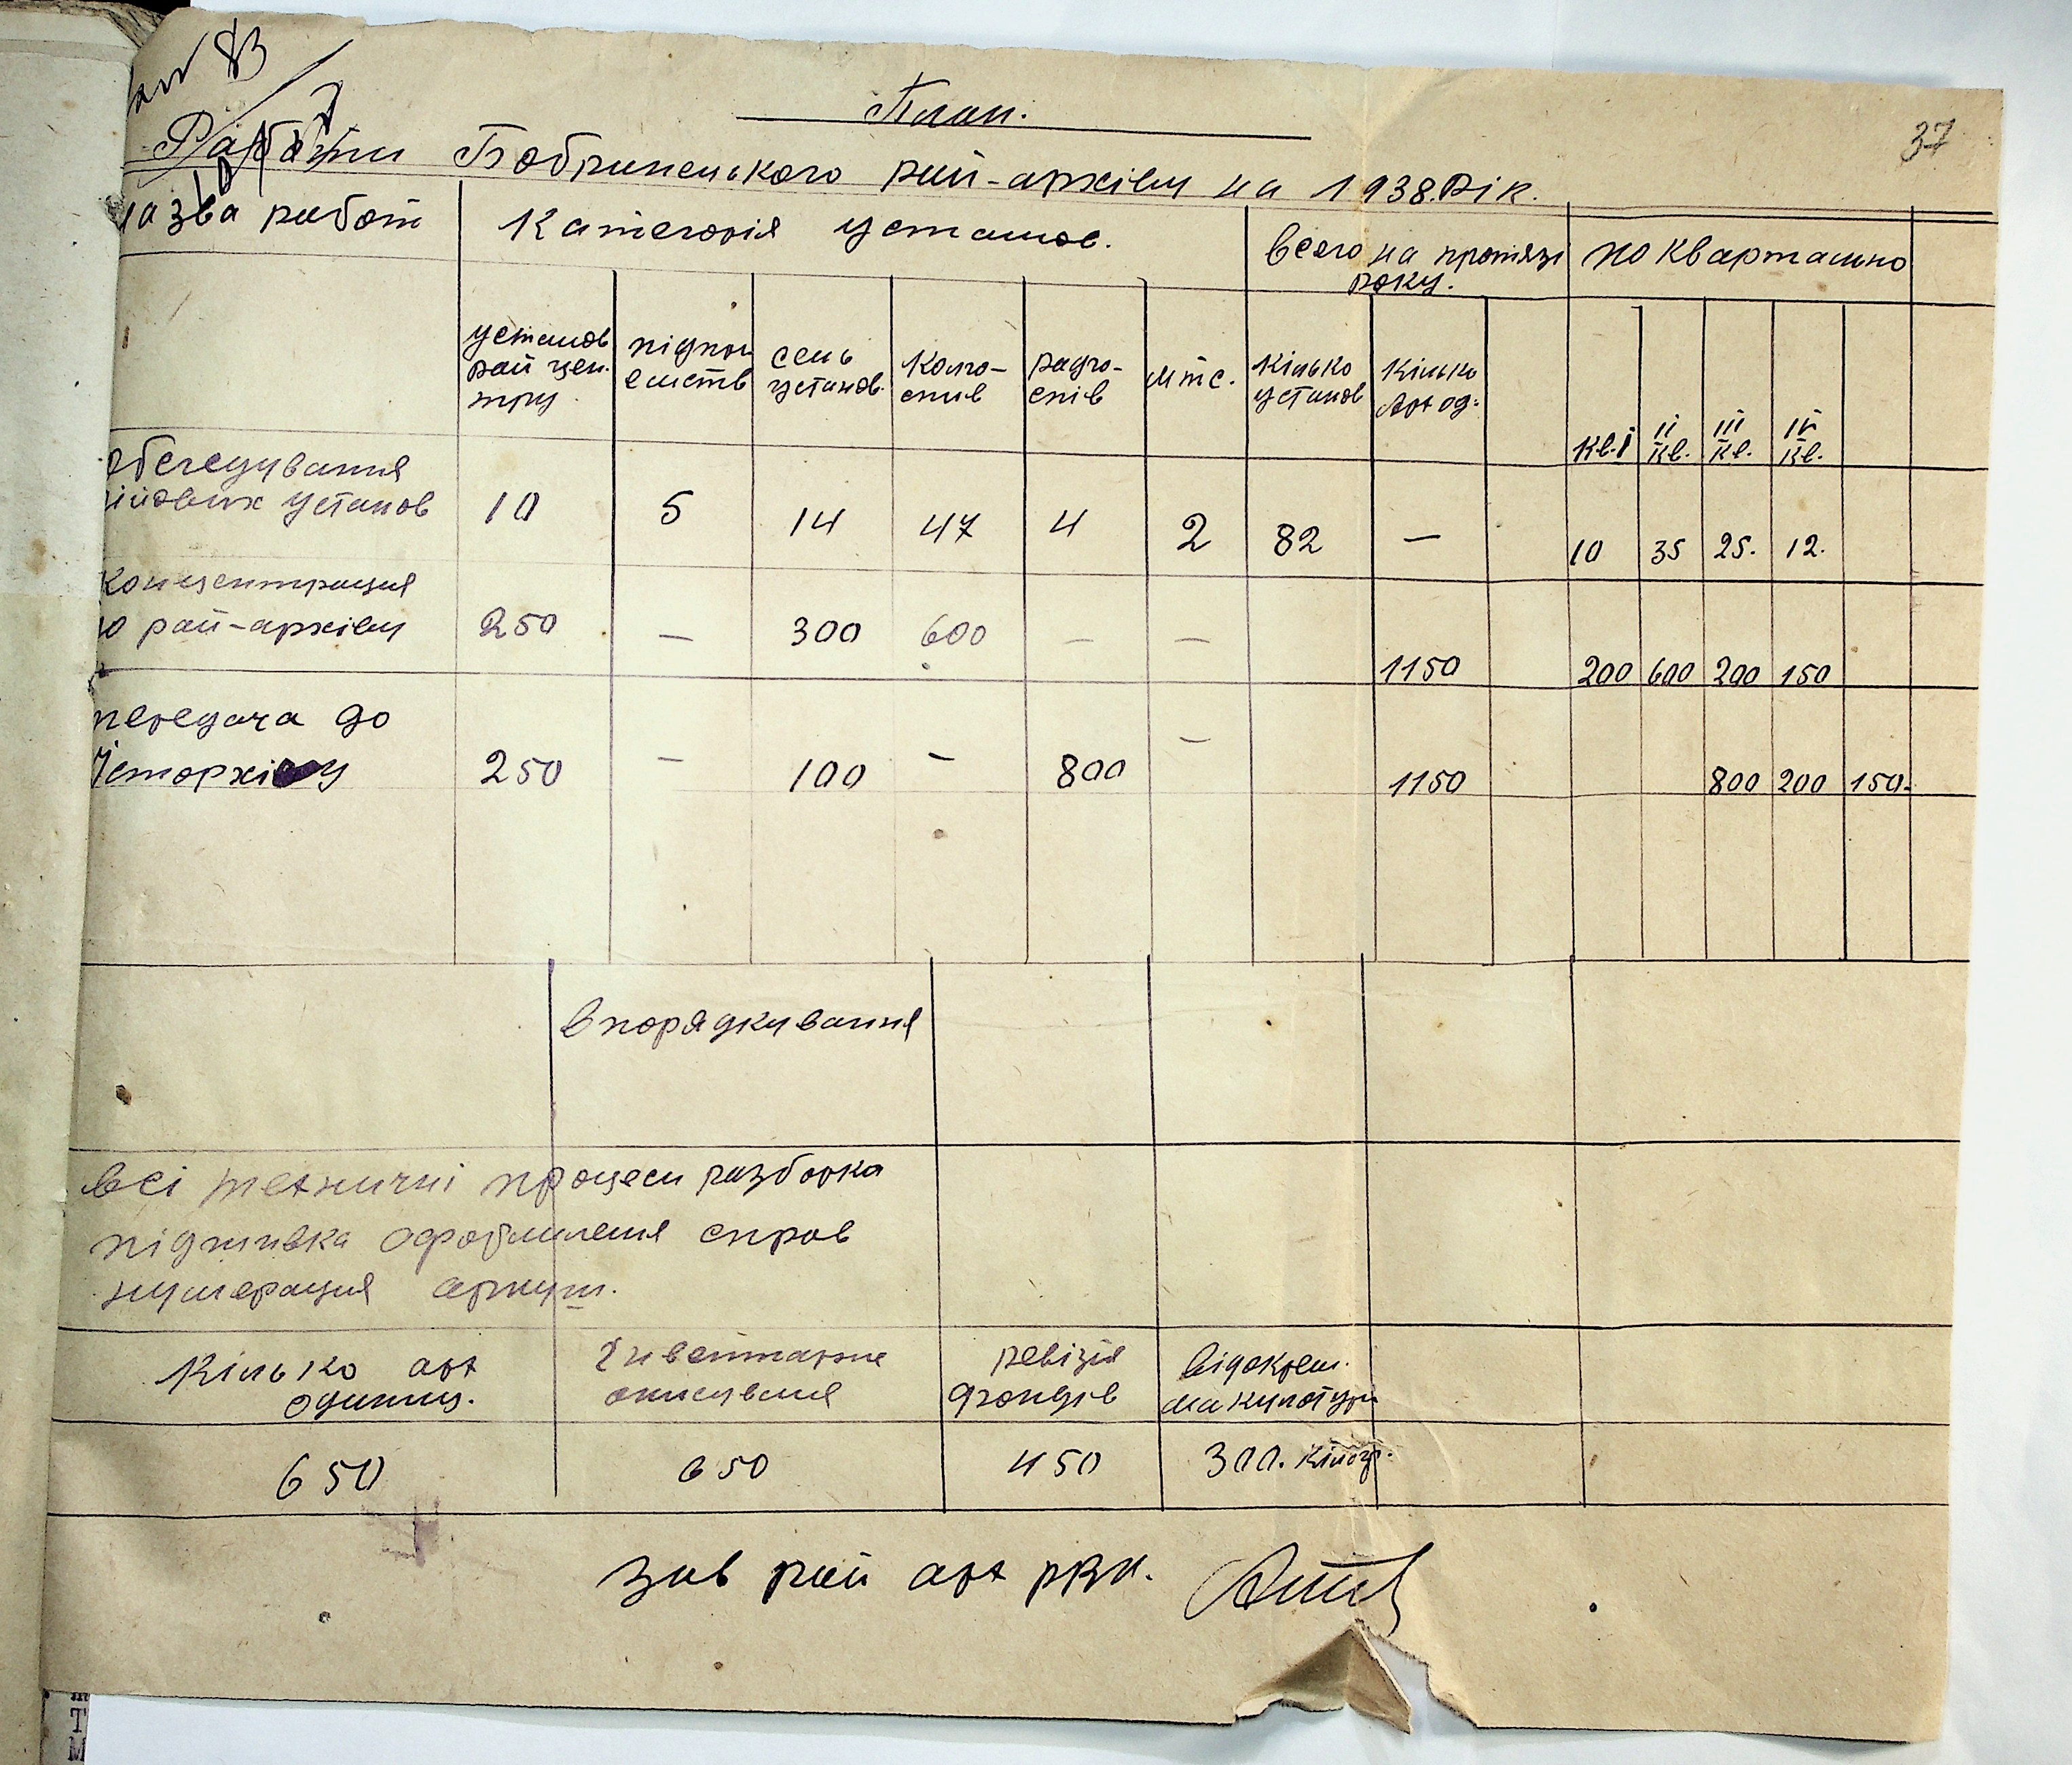 83
37
План.
Работи Бобринецького рай-архіву на 1938.Рік.
назва работ Категорія установ. всего на протязі року. по квартально
установ рай цен. тру підпри ємств сель установ. колго- спив радго- спів мтс. кілько установ кілько Арх од: кв. I II кв. III кв. IV кв.
обследування
низових установ 10 5 14 47 4 2 82 — 10 35 25. 12.
концентрация
до рай-архіву 250 — 300 600 — — 1150 200 600 200 150
передача до
Істархіву 250 — 100 — 800 — 1150 800 200 150-
впорядкування
всі технични процеси разборка
підшивка оформленя справ
нумерация аркуш.
Кілько арх одиниц. Інвентарне описування ревізія фондів відокрем. макулатури
650 650 450 300. кілогр.
зав рай арх РВК.